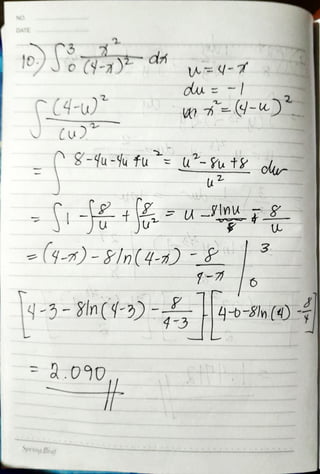 NO.
DATE
10.) ∫ 3 0 x² / (4-x)² dx
u = 4-x
du = -1
x² = (4-u)²
∫ (4-u)² / (u)²
= ∫ 8-4u-4u+u² = u²-8u+8 / u² du
= ∫ 1 - ∫ 8/u + ∫ 8/u² = u - 8lnu - 8/u
= (4-x) - 8ln(4-x) - 8/4-x | 3 0
[4-3-8ln(4-3) - 8/4-3] - [4-0-8ln(4) - 8/4]
= 2.090